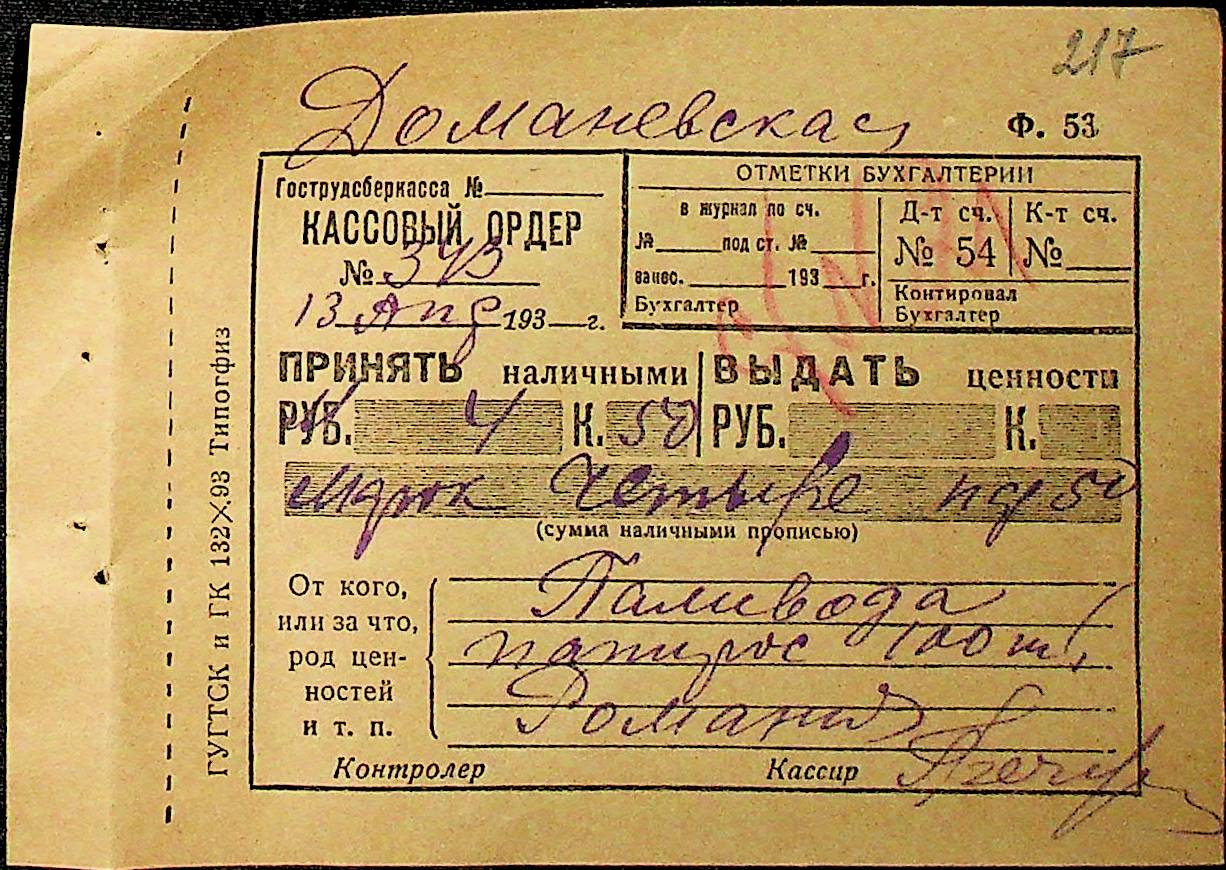 217
Доманевская
Ф. 53
Гострудсберкасса №
КАССОВЫЙ ОРДЕР
№ 343
13 Апр 193 г.
ОТМЕТКИ БУХГАЛТЕРИИ
в журнал по сч.
№ под ст. №
занес. 193 г.
Бухгалтер
Д-т сч.
№ 54
К-т сч.
№
Контировал
Бухгалтер
ПРИНЯТЬ наличными
РУБ. 4 К. 50
ВЫДАТЬ ценности
РУБ. К.
марок Четыре пф 50
(сумма наличными прописью)
От кого,
или за что,
род цен-
ностей
и т. п.
Паливода
папирос 100 шт
Романи
Контролер
Кассир
ГУГТСК и ГК 132×93 Типогфиз